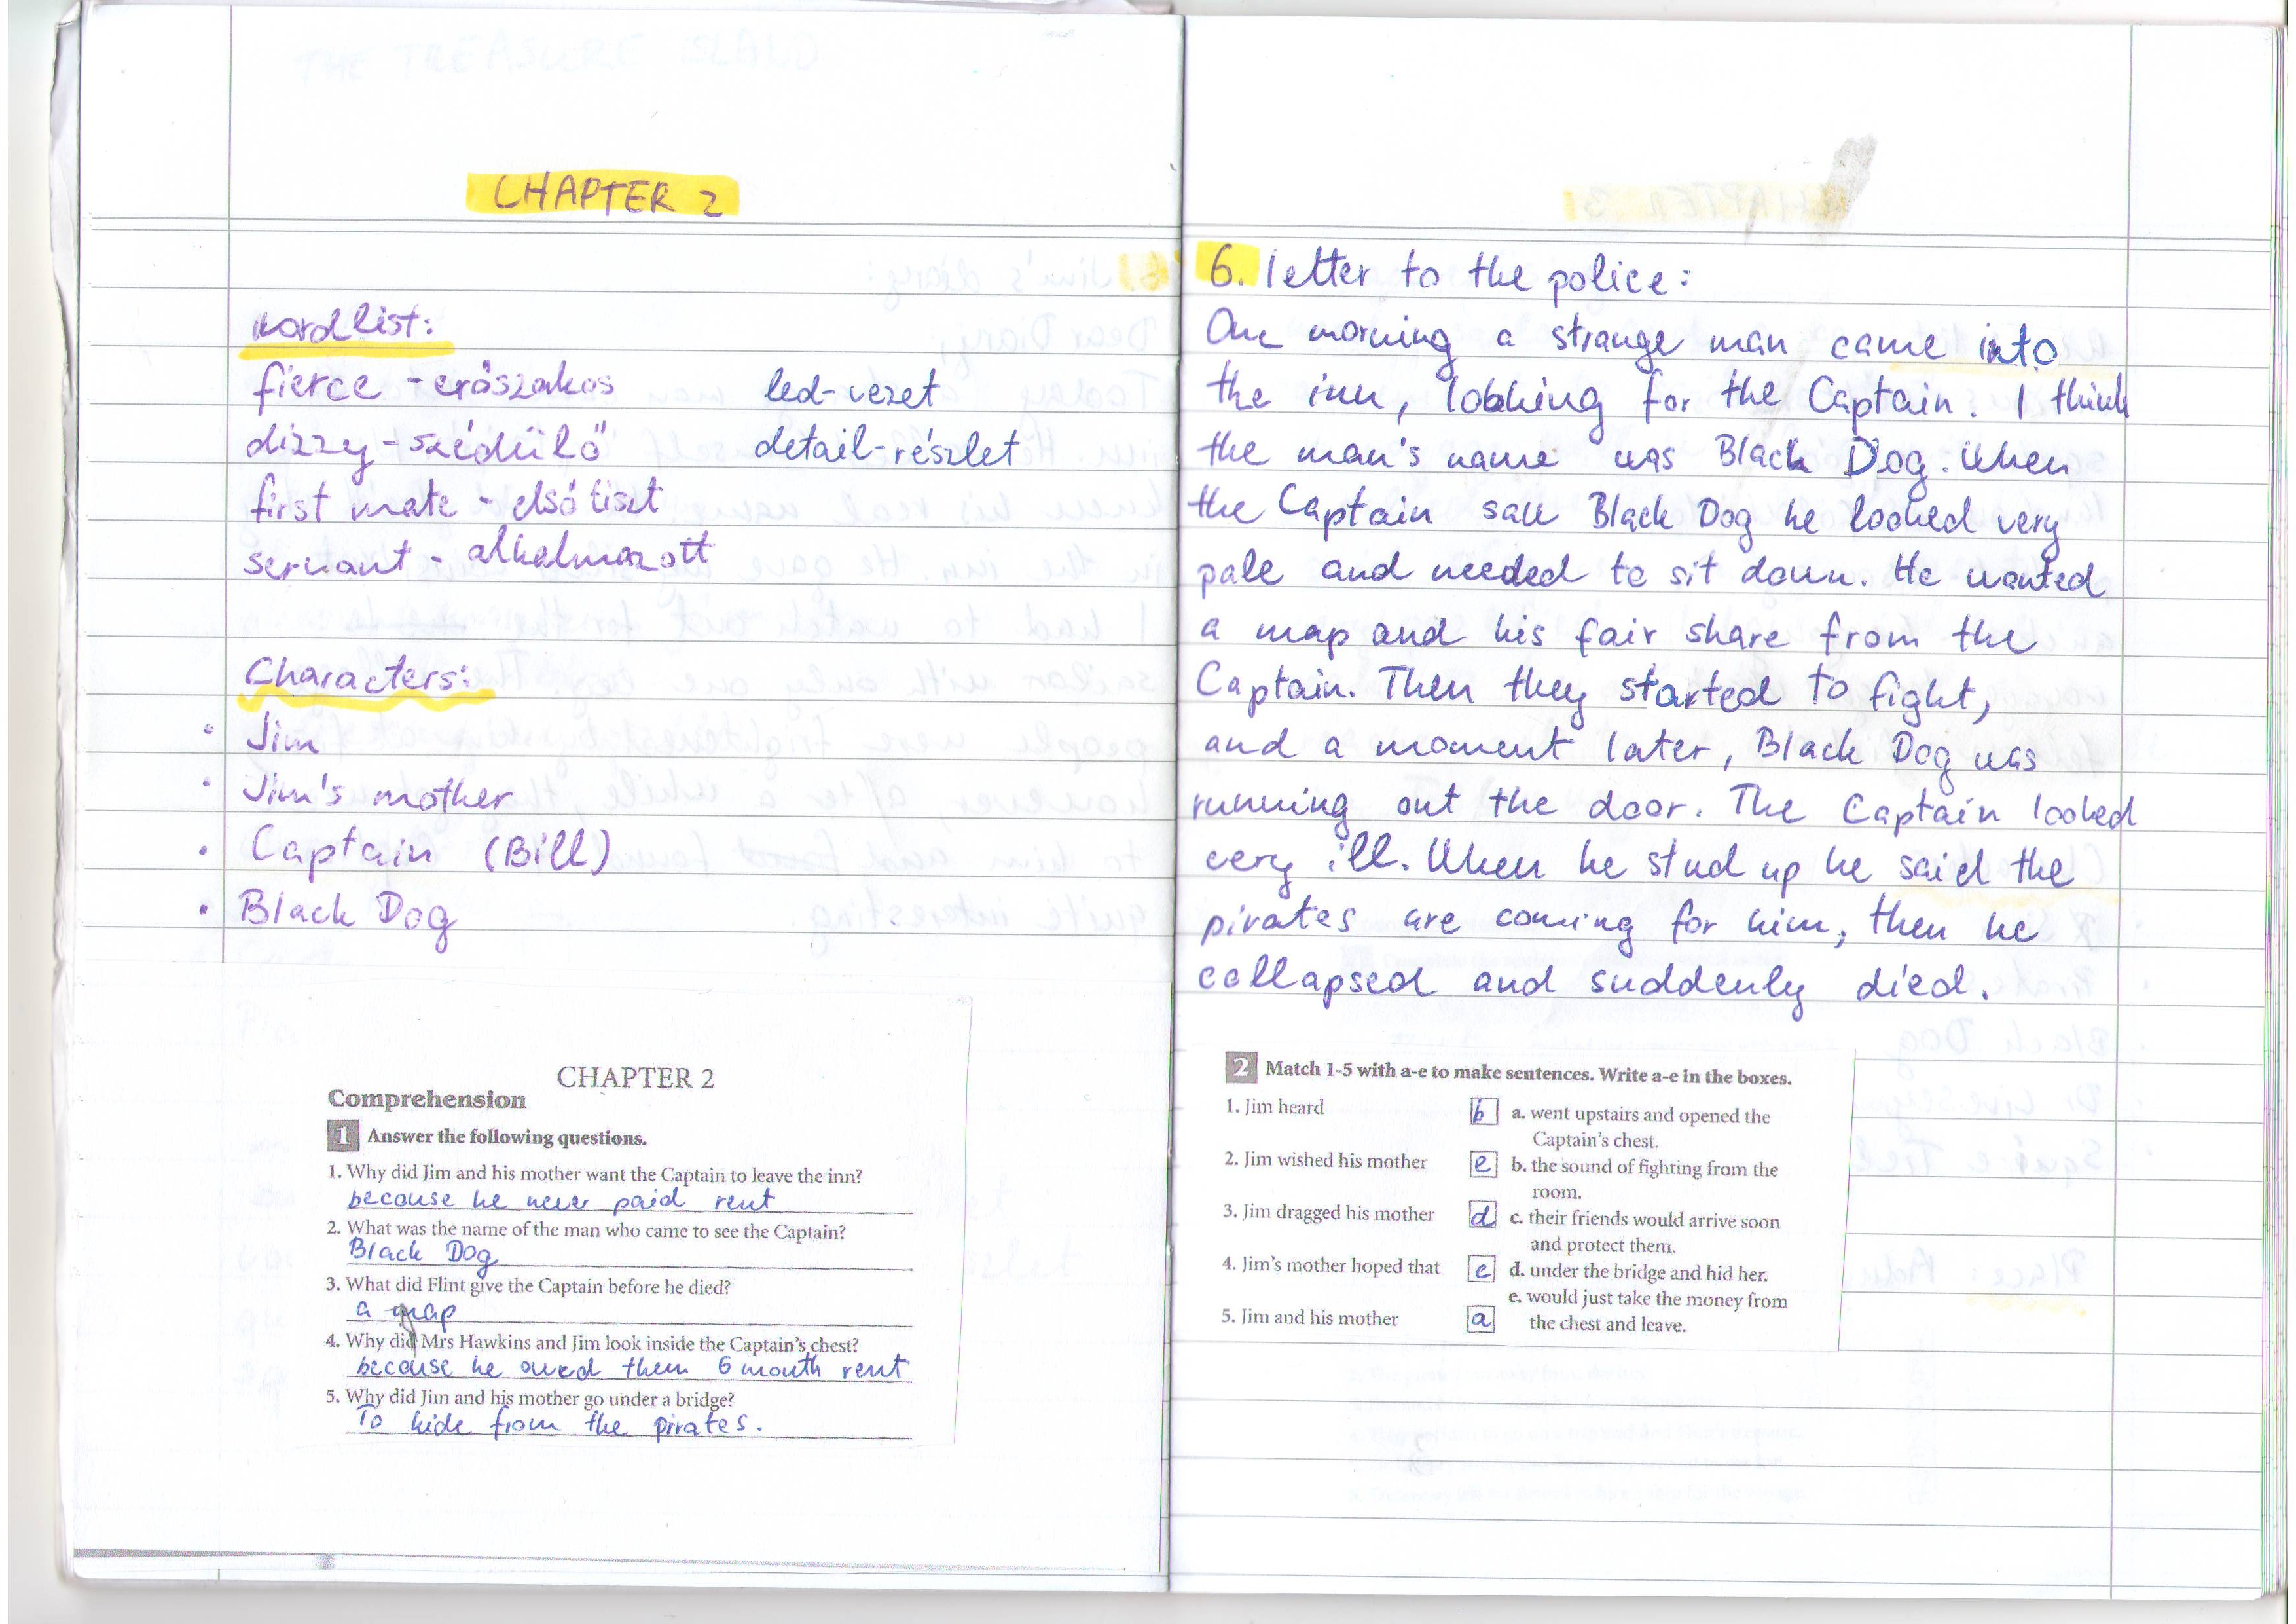 THE TREASURE ISLAND
CHAPTER 2
word list:
fierce - erőszakos
dizzy - szédülő
first mate - első tiszt
servant - alkalmazott
led - vezet
detail - részlet
Characters:
• Jim
• Jim's mother
• Captain (Bill)
• Black Dog
CHAPTER 2
Comprehension
1 Answer the following questions.
1. Why did Jim and his mother want the Captain to leave the inn?
becouse he never paid rent
2. What was the name of the man who came to see the Captain?
Black Dog
3. What did Flint give the Captain before he died?
a map
4. Why did Mrs Hawkins and Jim look inside the Captain's chest?
becouse he owed them 6 month rent
5. Why did Jim and his mother go under a bridge?
To hide from the pirates.
6. letter to the police:
One morning a strange man came into
the inn, looking for the Captain. I think
the man's name was Black Dog. When
the Captain saw Black Dog he looked very
pale and needed to sit down. He wanted
a map and his fair share from the
Captain. Then they started to fight,
and a moment later, Black Dog was
running out the door. The Captain looked
very ill. When he stud up he said the
pirates are coming for him, then he
collapsed and suddenly died.
2 Match 1-5 with a-e to make sentences. Write a-e in the boxes.
1. Jim heard b a. went upstairs and opened the
Captain's chest.
2. Jim wished his mother e b. the sound of fighting from the
room.
3. Jim dragged his mother d c. their friends would arrive soon
and protect them.
4. Jim's mother hoped that e d. under the bridge and hid her.
e. would just take the money from
5. Jim and his mother a the chest and leave.